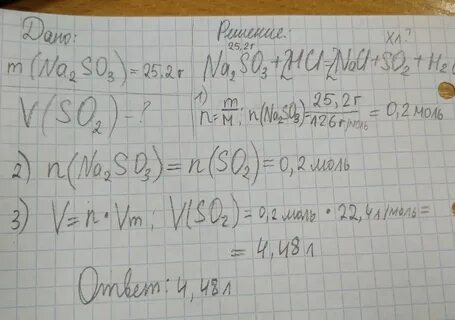 Дано: Решение:
25,2г хл?
m(Na₂SO₃)=25,2г Na₂SO₃+2HCl=2NaCl+SO₂+H₂O
V(SO₂)-? 1) n=m/M; n(Na₂SO₃)=25,2г/126г/моль=0,2моль
2) n(Na₂SO₃)=n(SO₂)=0,2моль
3) V=n·Vm; V(SO₂)=0,2моль·22,4л/моль=
=4,48л
Ответ: 4,48л